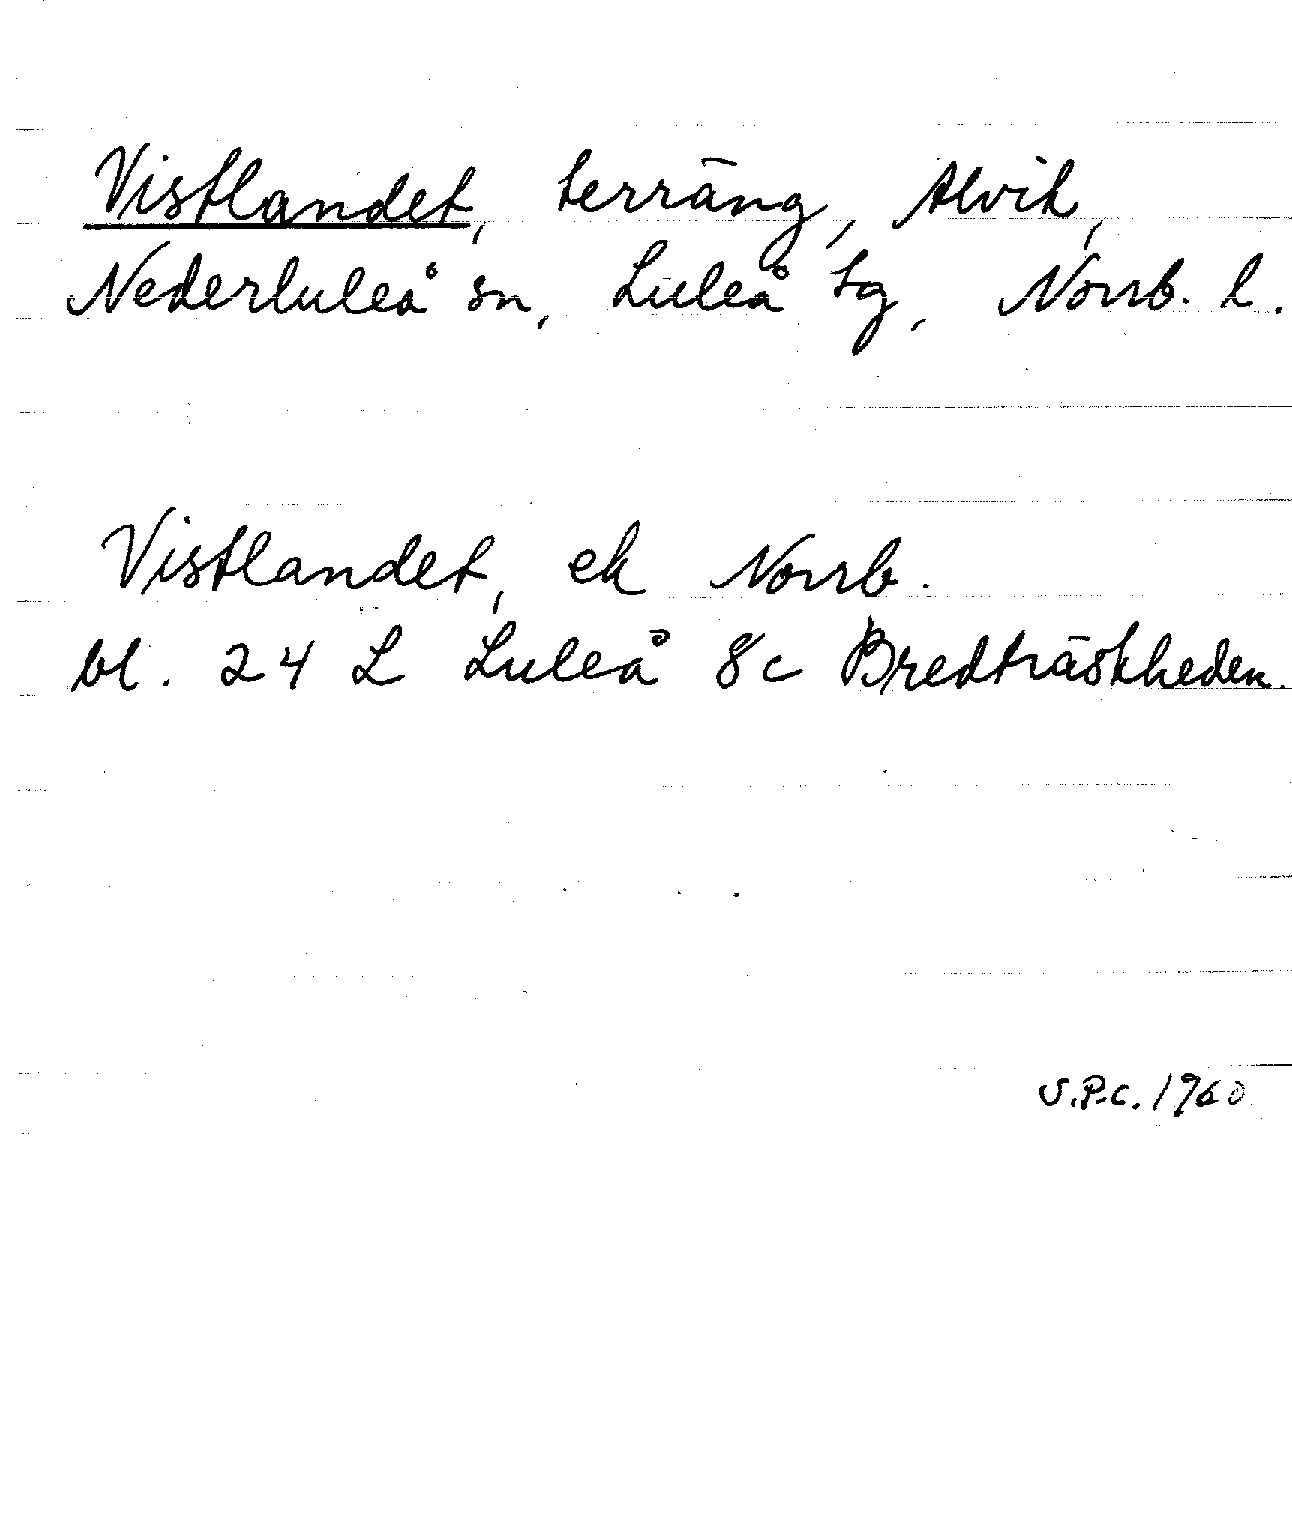 Vistlandet, terräng, Alvik,
Nederluleå sn, Luleå tg, Norrb. l.
Vistlandet, ek Norrb.
bl. 24 L Luleå 8c Bredträskheden.
S.P.C. 1960